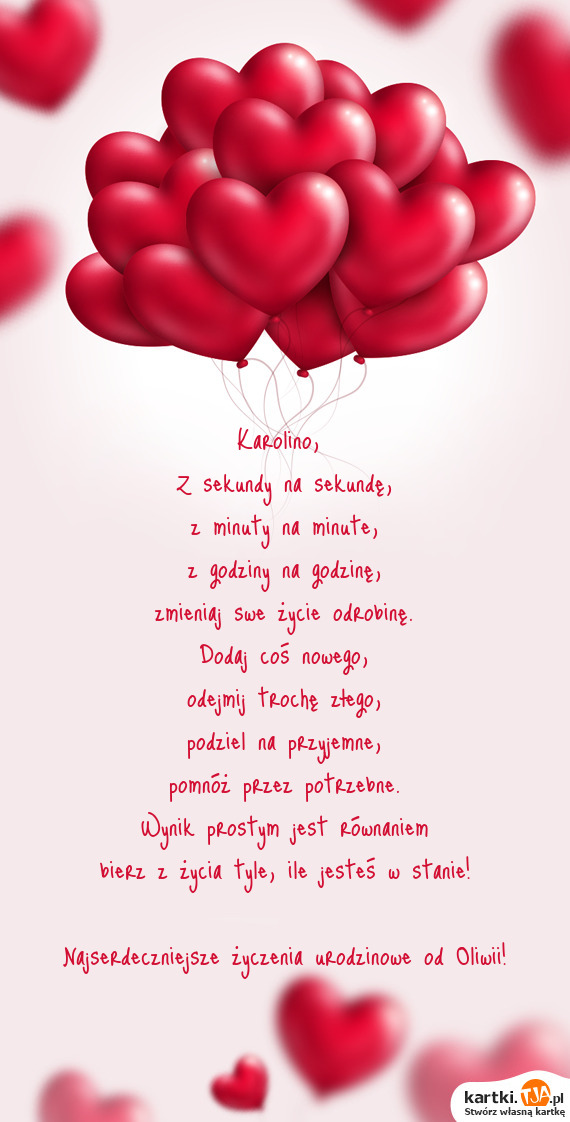 Karolino,
Z sekundy na sekundę,
z minuty na minute,
z godziny na godzinę,
zmieniaj swe życie odrobinę.
Dodaj coś nowego,
odejmij trochę złego,
podziel na przyjemne,
pomnóż przez potrzebne.
Wynik prostym jest równaniem
bierz z życia tyle, ile jesteś w stanie!
Najserdeczniejsze życzenia urodzinowe od Oliwii!
kartki.TJA.pl
Stwórz własną kartkę